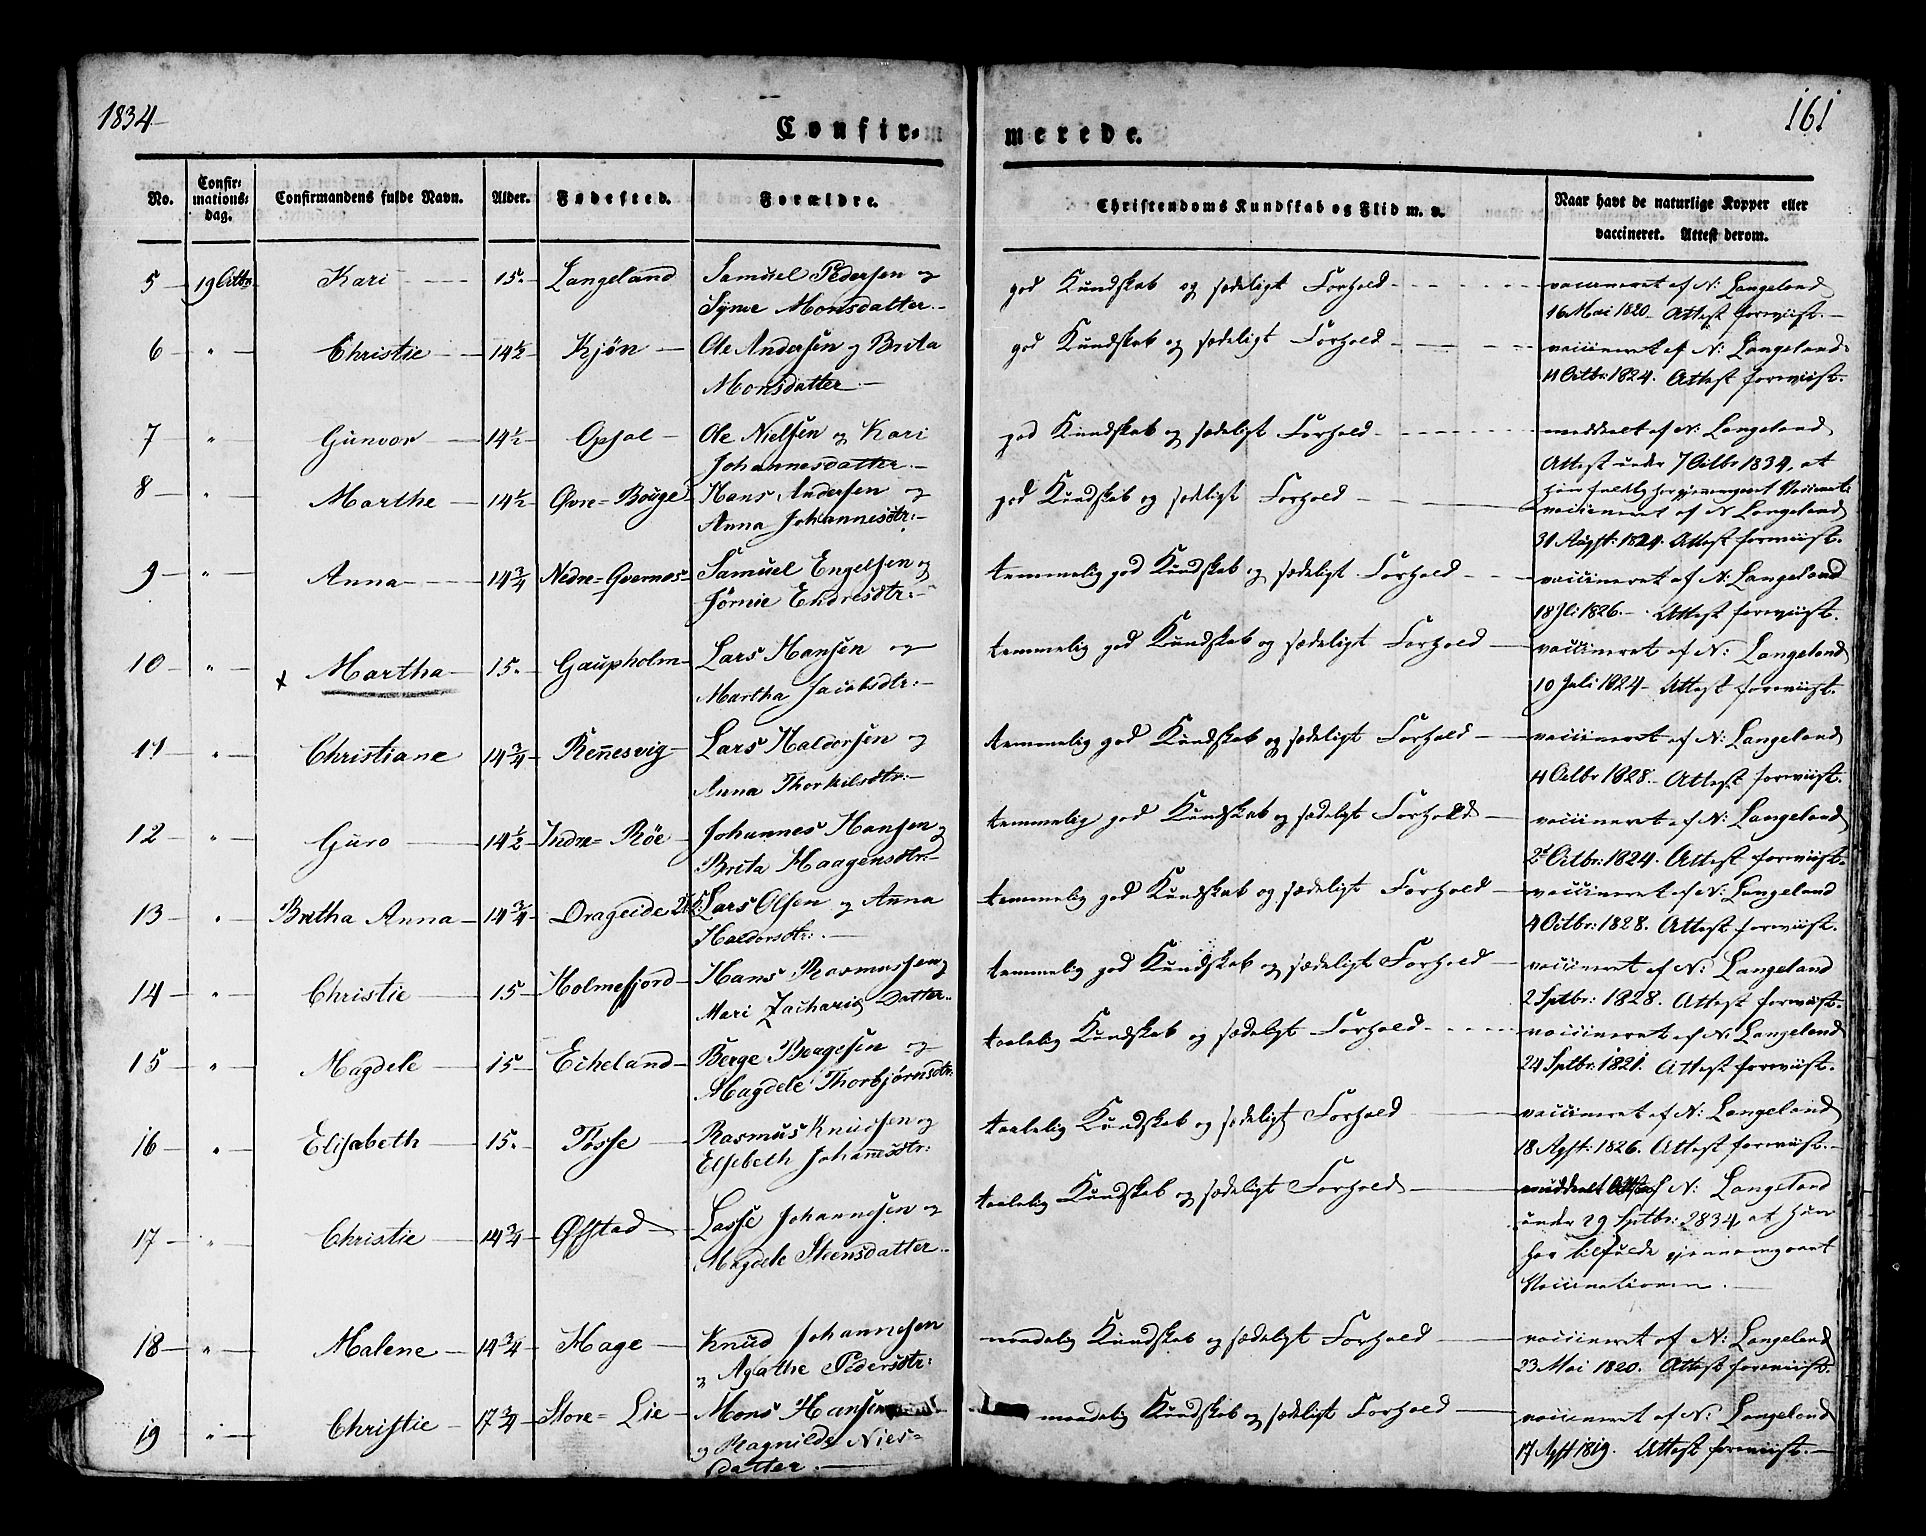 1834
161
Confir-
merede.
No.
Confir-
mations-
dag.
Confirmandens fulde Navn.
Alder.
Fødested.
Forældre.
Christendoms Kundskab og Flid m. v.
Naar havt de naturlige Kopper eller
vaccineret. Attest derom.
5 19 Octbr Kari 15. Langeland Samuel Pedersen og god Kundskab og sædeligt Forhold vaccineret af N: Langeland
Monsdatter 16 Mai 1820 Attest foreviist.
6 " Christie 14½ Kjøn Ole Andersen og Brita god Kundskab og sædeligt Forhold vaccineret af N: Langeland
Monsdatter 11 Octbr: 1824. Attest foreviist.
7 " Gunvor 14½ Opsal Ole Nielsen og Kari god Kundskab og sædeligt Forhold meddeelt af N: Langeland
Johannesdatter Attest under 7 Octbr 1834, at
8 " Marthe 14½ Øvre=Bouge Hans Andersen og god Kundskab og sædeligt Forhold hun fuldelig har gjennemgaaet
vaccineret af N Langeland
Anna Johannesdtr: 31 Augst: 1824. Attest foreviist.
9 " Anna 14¾ Nedre=Qvernes Samuel Engelsen og temmelig god Kundskab og sædeligt Forhold vaccineret af N: Langeland
Endresdtr: 18 Jli 1826. Attest foreviist.
10 " x Martha 15. Gaupholm Lars Hansen og temmelig god Kundskab og sædeligt Forhold vaccineret af N: Langeland
Martha Jacobsdtr: 10 Juli 1824 Attest foreviist.
11 " Christiane 14¾ Rennesvig Lars Haldorsen og temmelig god Kundskab og sædeligt Forhold vaccineret af N: Langeland
Anna Thorkilsdtr: 4 Octbr 1828. Attest foreviist.
12 " Guro 14½ Indre=Røe Johannes Hansen og temmelig god Kundskab og sædeligt Forhold vaccineret af N: Langeland
Brita Haagensdtr: Octbr: 1824. Attest foreviist.
13 " Britha Anna 14¾ Drageide Lars Olsen og Anna temmelig god Kundskab og sædeligt Forhold vaccineret af N: Langeland
Haldorsdtr: 4 Octbr: 1828. Attest foreviist.
14 " Christie 15 Holmefjord Hans Rasmussen og temmelig god Kundskab og sædeligt Forhold vaccineret af N: Langeland
Mari Zacharias Datter 2 Sptbr: 1828. Attest foreviist.
15 " Magdele 15 Echeland Berge Bergesen og taalelig Kundskab og sædeligt Forhold vaccineret af N: Langeland
Magdele Thorbjørnsdtr: 24 Sptbr: 1821. Attest foreviist.
16 " Elisabeth 15. Tosse Rasmus Knudsen og taalelig Kundskab og sædeligt Forhold vaccineret af N: Langeland
Elsebeth Johannesdtr: 18 Agst: 1826. Attest foreviist.
17 " Christie 14¾ Øfstad Lasse Johannesen og taalelig Kundskab og sædeligt Forhold meddeelt Attest af N: Langeland
Magdele Steensdatter under 29 Sptbr: 1834, at hun
har tilfulde gjennemgaaet
Vaccinationen.
18 " Malene 14¾ Hage Knud Johannesen maadelig Kundskab og sædeligt Forhold vaccineret af N: Langeland
og Agathe Pedersdtr: 23 Mai 1820. Attest foreviist.
19 " Christie 17¾ Store=Lie Mons Hansen maadelig Kundskab og sædeligt Forhold vaccineret af N: Langeland
og Ragnilde Niels=
datter. 17 Agst 1819. Attest foreviist.